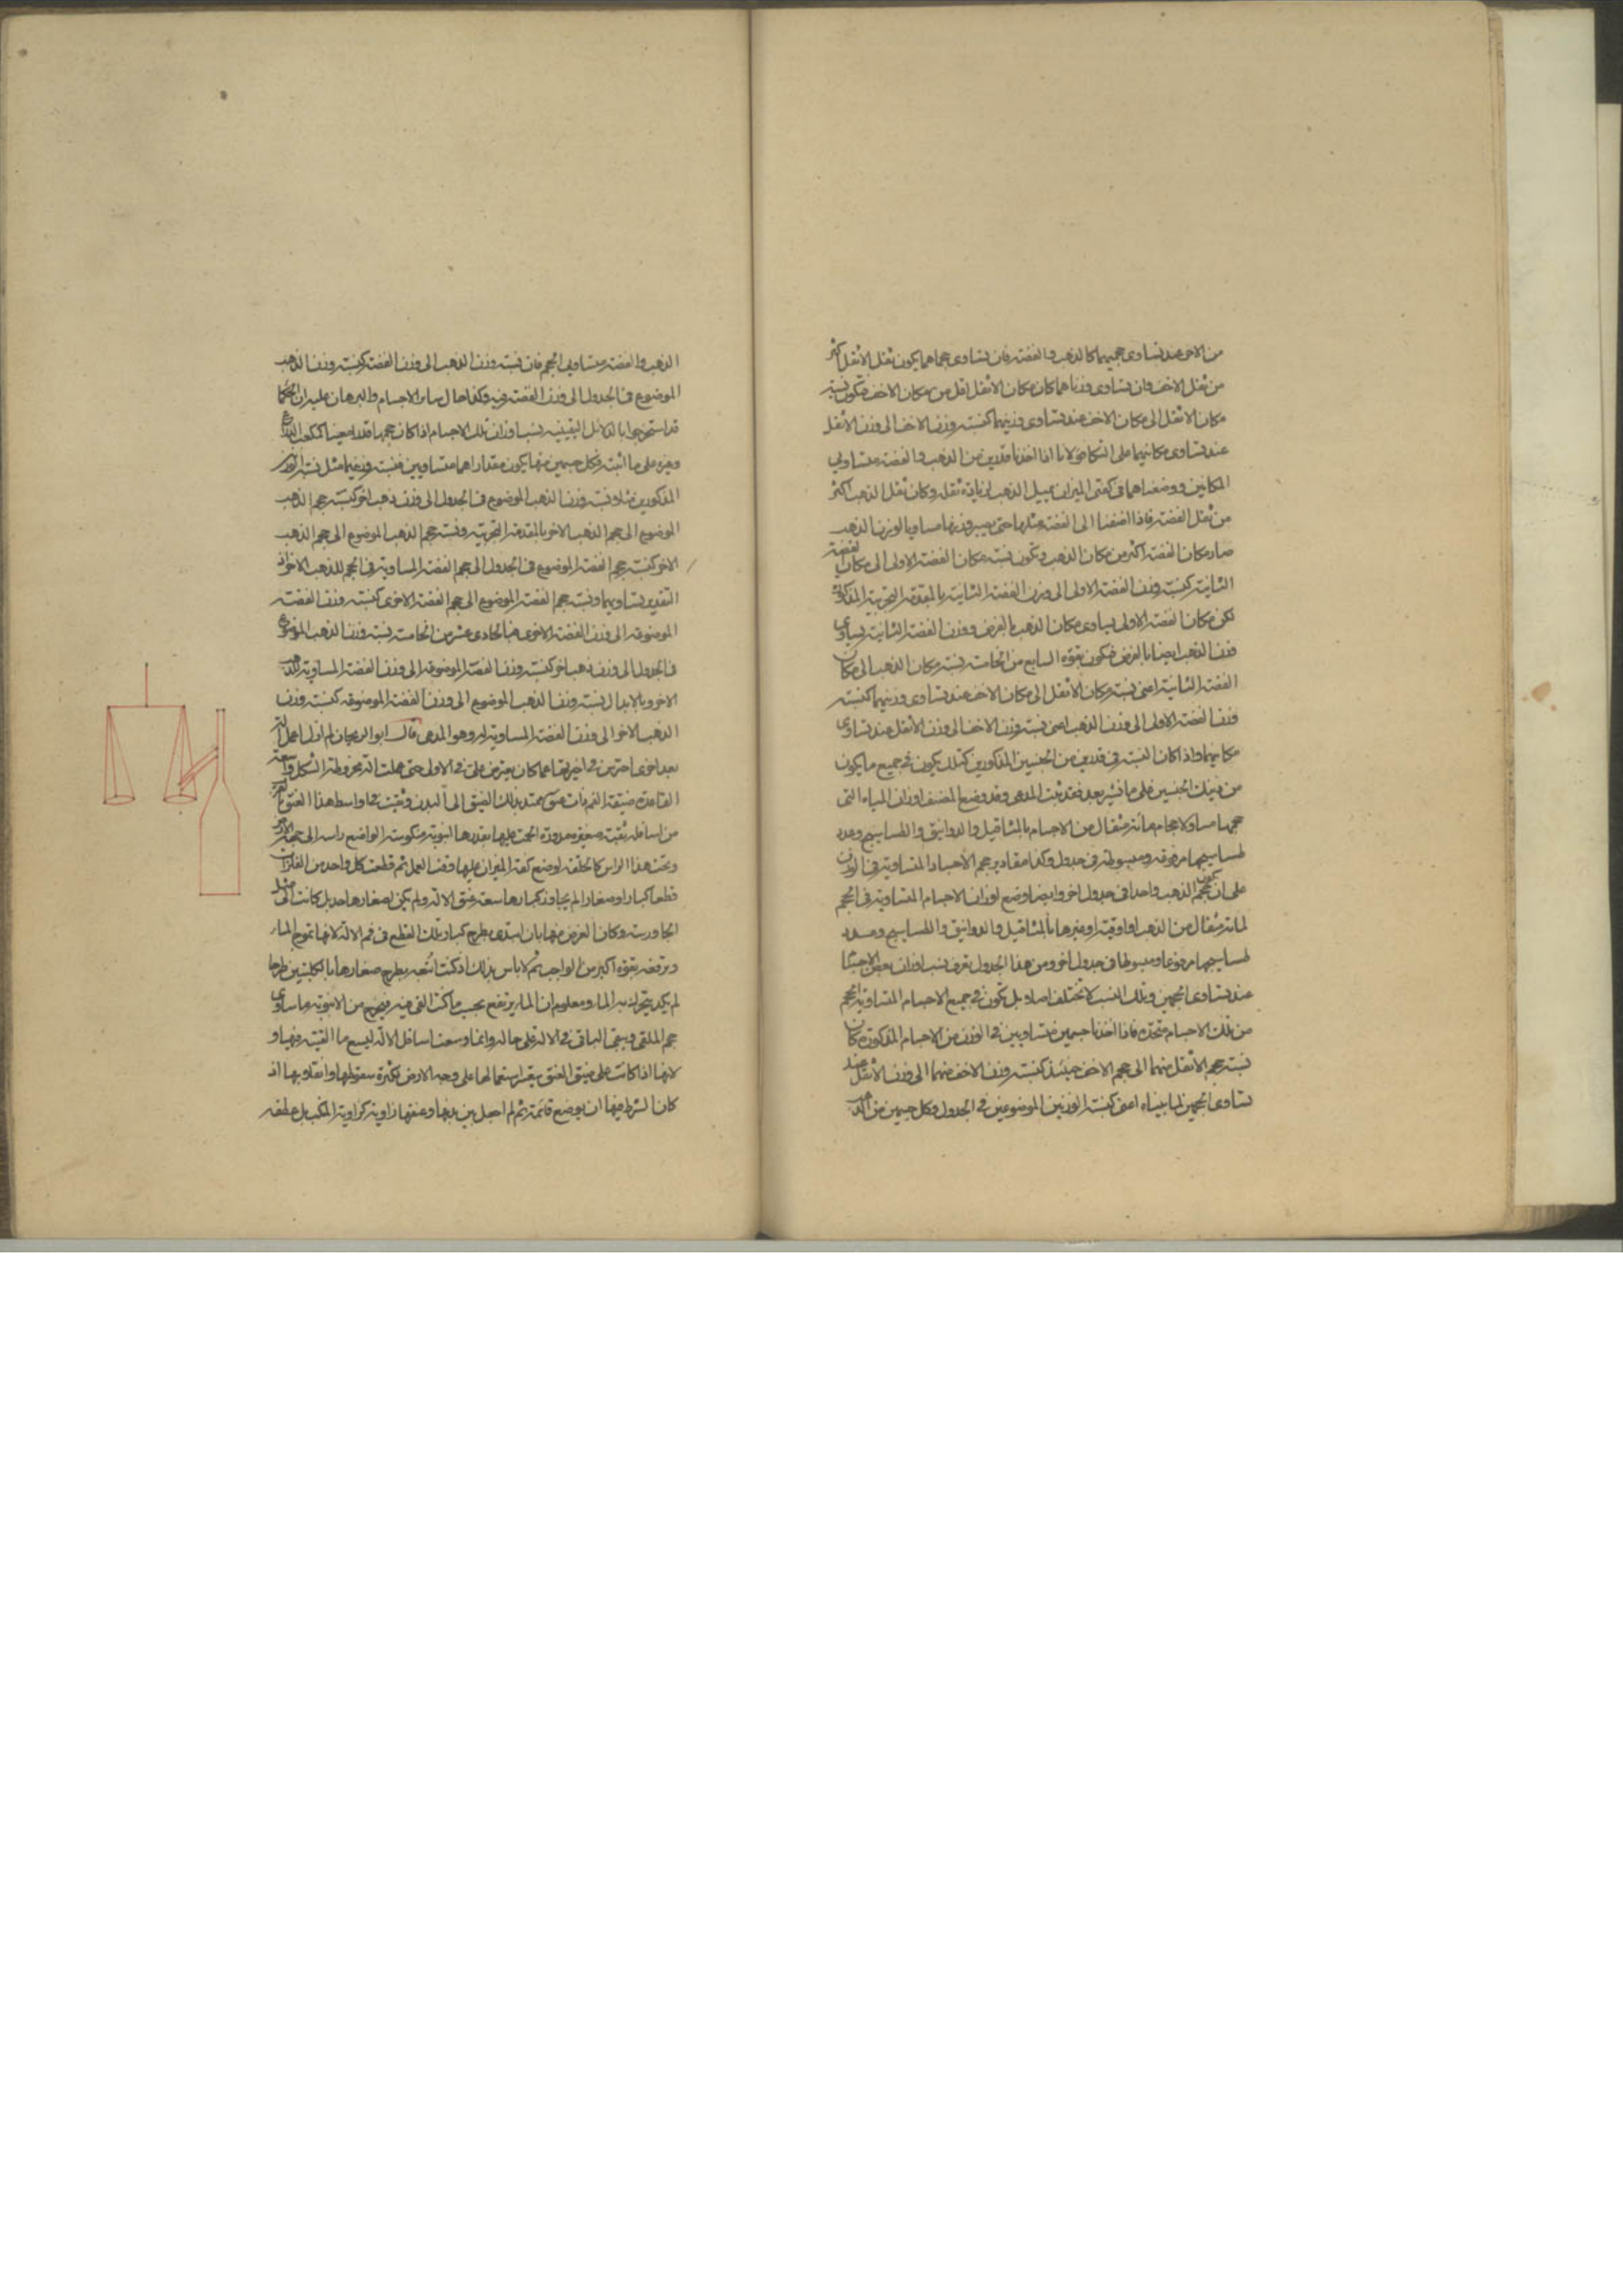 من الاخر عند تساوى حجميهما كالذهب والفضة فان تساوى حجماهما يكون ثقل الاثقل اكثر
من ثقل الاخف وان تساوى وزناهما كان مكان الاثقل اقل من مكان الاخف فتكون نسبة
مكان الاثقل الى مكان الاخف عند تساوى وزنيهما كنسبة وزن الاخف الى وزن الاثقل
عند تساوى مكانيهما على التكافؤ لانا اذا اخذنا قدرين من الذهب والفضة متساويى
المكانين ووضعناهما فى كفتى الميزان يميل الذهب لزيادة ثقله وكان ثقل الذهب اكثر
من ثقل الفضة فاذا اضفنا الى الفضة مثلها حتى يصير وزنها مساويا لوزن الذهب
صار مكان الفضة اكثر من مكان الذهب وتكون نسبة مكان الفضة الاولى الى مكان الفضة
الثانية كنسبة وزن الفضة الاولى الى وزن الفضة الثانية بالمقدمة التجربية المذكورة
لكن مكان الفضة الاولى يساوى مكان الذهب بالفرض ووزن الفضة الثانية يساوى
وزن الذهب ايضا بالفرض فيكون بقوة السابع من الخامسة نسبة مكان الذهب الى مكان
الفضة الثانية اعنى نسبة مكان الاثقل الى مكان الاخف عند تساوى وزنيهما كنسبة
وزن الفضة الاولى الى وزن الذهب اعنى نسبة وزن الاخف الى وزن الاثقل عند تساوى
مكانيهما واذا كان النسبة فى قدرين من الجنسين المذكورين كذلك يكون فى جميع ما يكون
من ذينك الجنسين على ما نشير بعد فقد ثبت المدعى وقد وضع المصنف اوزان المياه التى
حجمها مساو لاحجام مائة مثقال من الاجسام بالمثاقيل والدوانيق والطساسيج وعدد
طساسيجها مرفوعة ومبسوطة فى جدول وكذا مقادير حجم الاجساد المتساوية فى الوزن
على ان يكون حجم الذهب واحدا فى جدول اخر وايضا وضع اوزان الاجسام المتساوية فى الحجم
لمائة مثقال من الذهب او اوقية او غيرها بالمثاقيل والدوانيق والطساسيج وعدد
طساسيجها مرفوعا ومبسوطا فى جدول اخر ومن هذا الجدول تعرف نسب اوزان بعض الاجساد
عند تساوى الحجمين وتلك النسب لا تختلف اصلا بل تكون فى جميع الاجسام المتساوية الحجم
من تلك الاجسام متحدة فاذا اخذنا جسمين متساويين فى الوزن من الاجسام المذكورة كان
نسبة حجم الاثقل منهما الى حجم الاخف حينئذ كنسبة وزن الاخف منهما الى وزن الاثقل عند
تساوى الحجمين لما بيناه اعنى كنسبة الوزنين الموضوعين فى الجدول وكل جسمين من الذهب
الذهب والفضة متساويى الحجم فان نسبة وزن الذهب الى وزن الفضة كنسبة وزن الذهب
الموضوع فى الجدول الى وزن الفضة فيه وكذا حال سائر الاجسام والبرهان عليه ان الحكما
قد استخرجوا بالدلائل اليقينية نسب اوزان تلك الاجسام اذا كان حجمها قدرا معينا كمكعب الذراع
وغيره على ما اثبته فكل جسمين منها يكون مقداراهما متساويين فنسبة وزنيهما مثل نسبة الوزنين
المذكورين مثلا ونسبة وزن الذهب الموضوع فى الجدول الى وزن ذهب اخر كنسبة حجم الذهب
الموضوع الى حجم الذهب الاخر بالمقدمة التجربية ونسبة حجم الذهب الموضوع الى حجم الذهب
الاخر كنسبة حجم الفضة الموضوع فى الجدول الى حجم الفضة المساوية فى الحجم للذهب الاخر اذ
التقدير تساويهما ونسبة حجم الفضة الموضوع الى حجم الفضة الاخرى كنسبة وزن الفضة
الموضوعة الى وزن الفضة الاخرى فبالحادى عشر من الخامسة نسبة وزن الذهب الموضوع
فى الجدول الى وزن ذهب اخر كنسبة وزن الفضة الموضوعة الى وزن الفضة المساوية للذهب
الاخر وبالابدال نسبة وزن الذهب الموضوع الى وزن الفضة الموضوعة كنسبة وزن
الذهب الاخر الى وزن الفضة المساوية له وهو المدعى قال ابو الريحان لم ازل اعمل الة
بعد اخرى احترس فى اخيرتها عما كان يعترض على فى الاولى حتى عملت الة مخروطة الشكل واسعة
القاعدة ضيقة الفم ذات عنق ممتد بذلك الضيق الى البدن وثقبت فى اواسط هذا العنق بالقرب
من اسافله ثقبة صغيرة مدورة الحمت عليها بقدرها انبوبة منكوسة الواضع راسه الى جهة الارض
وتحت هذا الراس كالحلقة لوضع كفة الميزان عليها وقت العمل ثم قطعت كل واحد من الفلزات
قطعا كبارا وصغارا لم يجاوز كبارها سعة عنق الالة ولم يكن لصغارها حد بل كانت الى مثل
الجاورسة وكان الغرض منها بان ابتدى بطرح كبار تلك القطع فى فم الالة لانها تموج الماء
وترفعه بقوة اكثر من الواجب ثم لا باس بذلك اذ كنت اتبعه بطرح صغارها بالكلبتين طرحا
لم يكد يتحرك به الماء ومعلوم ان الماء يرتفع بحسب ما كنت القى فيه فيخرج من الانبوبة ما ساوى
حجم الملقى ويبقى الباقى فى الالة على حاله وانما وسعت اسافل الالة ليسع ما القيته فيها و
لانها اذا كانت على ضيق العنق يتعسر استعمالها على وجه الارض لكثرة سقوطها وانقلابها اذ
كان الشرط فيها ان يوضع قائمة ثم لم اجعل بين بدنها وعنقها زاوية كزاوية المكب بل عطفة